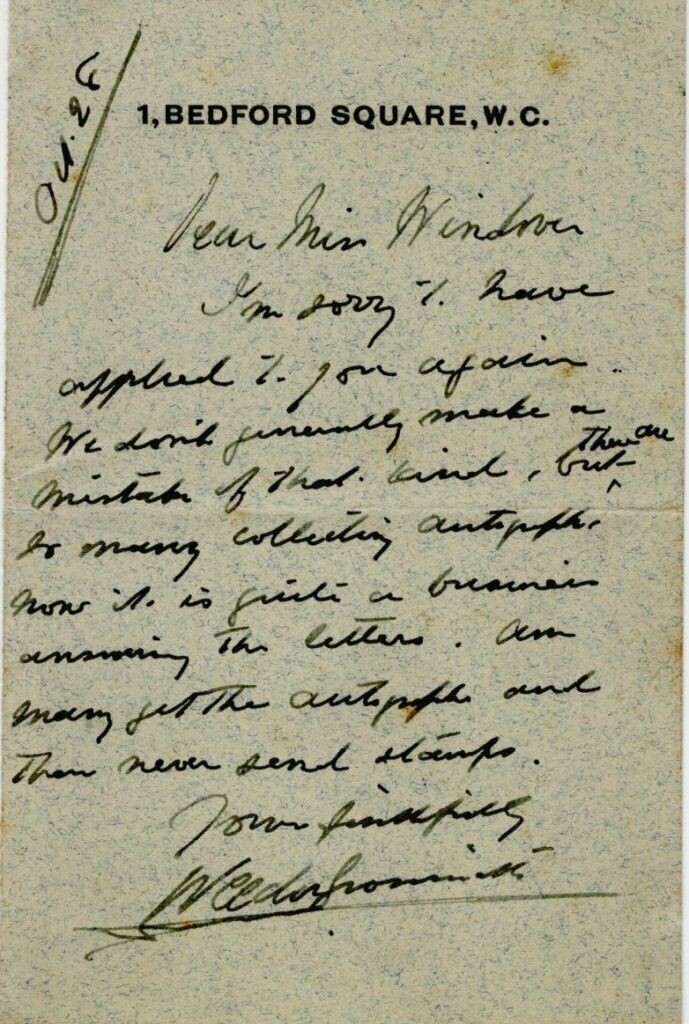 Oct. 26
1, BEDFORD SQUARE, W.C.
Dear Miss Windover
I'm sorry to have
applied to you again.
We don't generally make a
mistake of that kind, but there are
so many collecting autographs
now it is quite a business
answering the letters.
many get the autographs and
then never send stamps.
Yours faithfully
Weedon Grossmith